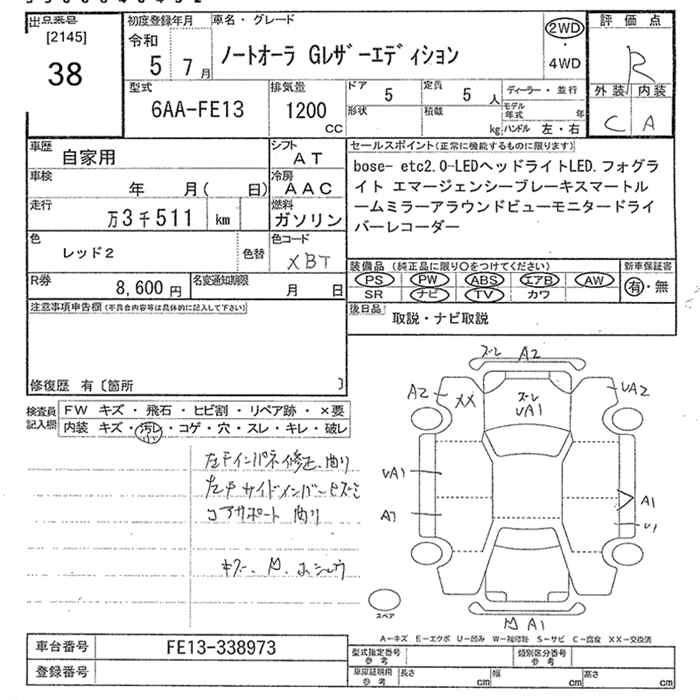 出品番号
[2145]
38
初度登録年月
令和
5 7月
車名・グレード
ノートオーラ Gレザーエディション
2WD
・
4WD
評価点
R
外装 内装
C A
型式
6AA-FE13
排気量
1200
CC
ドア 5
定員 5 人
形状
積載 kg
ディーラー・並行
モデル年式 年
ハンドル 左・右
車歴
自家用
シフト
AT
車検
年 月( 日)
冷房
AAC
走行
万3千511 km
燃料
ガソリン
色
レッド2
色替
色コード
XBT
R券
8,600円
名変通知期限
月 日
セールスポイント(正常に機能するものに限ります)
bose- etc2.0-LEDヘッドライトLED.フォグラ
イト エマージェンシーブレーキスマートル
ームミラーアラウンドビューモニタードライ
バーレコーダー
装備品 (純正品に限り○をつけてください)
PS PW ABS エアB AW
SR ナビ TV カワ
新車保証書
有・無
後日品
取説・ナビ取説
注意事項申告欄(不具合内容等は具体的に記入して下さい)
修復歴 有〔箇所 〕
検査員
記入欄
FW キズ・飛石・ヒビ割・リペア跡・×要
内装 キズ・汚レ・コゲ・穴・スレ・キレ・破レ
左Fインパネ修正、曲り
左Fサイドメンバーズミ
コアサポート 曲り
ズレ A2
A2 XX
ズレ
UA1
UA2
UA1
A1
A1
U1
スペア
M A1
A-キズ E-エクボ U-凹み W-補修跡 S-サビ C-腐食 XX-交換済
車台番号
FE13-338973
登録番号
型式指定番号
参考
類別区分番号
参考
車庫証明用
参考
長さ cm
幅 cm
高さ cm